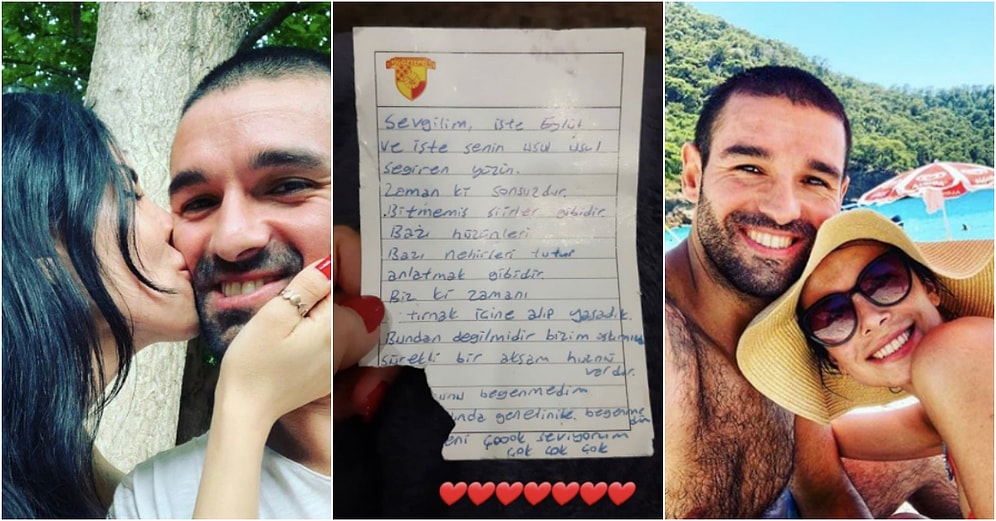 GÖZTEPE
Sevgilim, işte Eylül
ve işte senin usul usul
segiren yüzün.
Zaman ki sonsuzdur.
Bitmemiş şiirler gibidir.
Bazı hüzünleri
Bazı nehirleri tutup
anlatmak gibidir.
Biz ki zamanı
tırnak içine alıp yaşadık.
Bundan değilmidir bizim
sürekli bir akşam hüznü
vardır.
beğenmedim
çoook seviyorum
çok çok çok